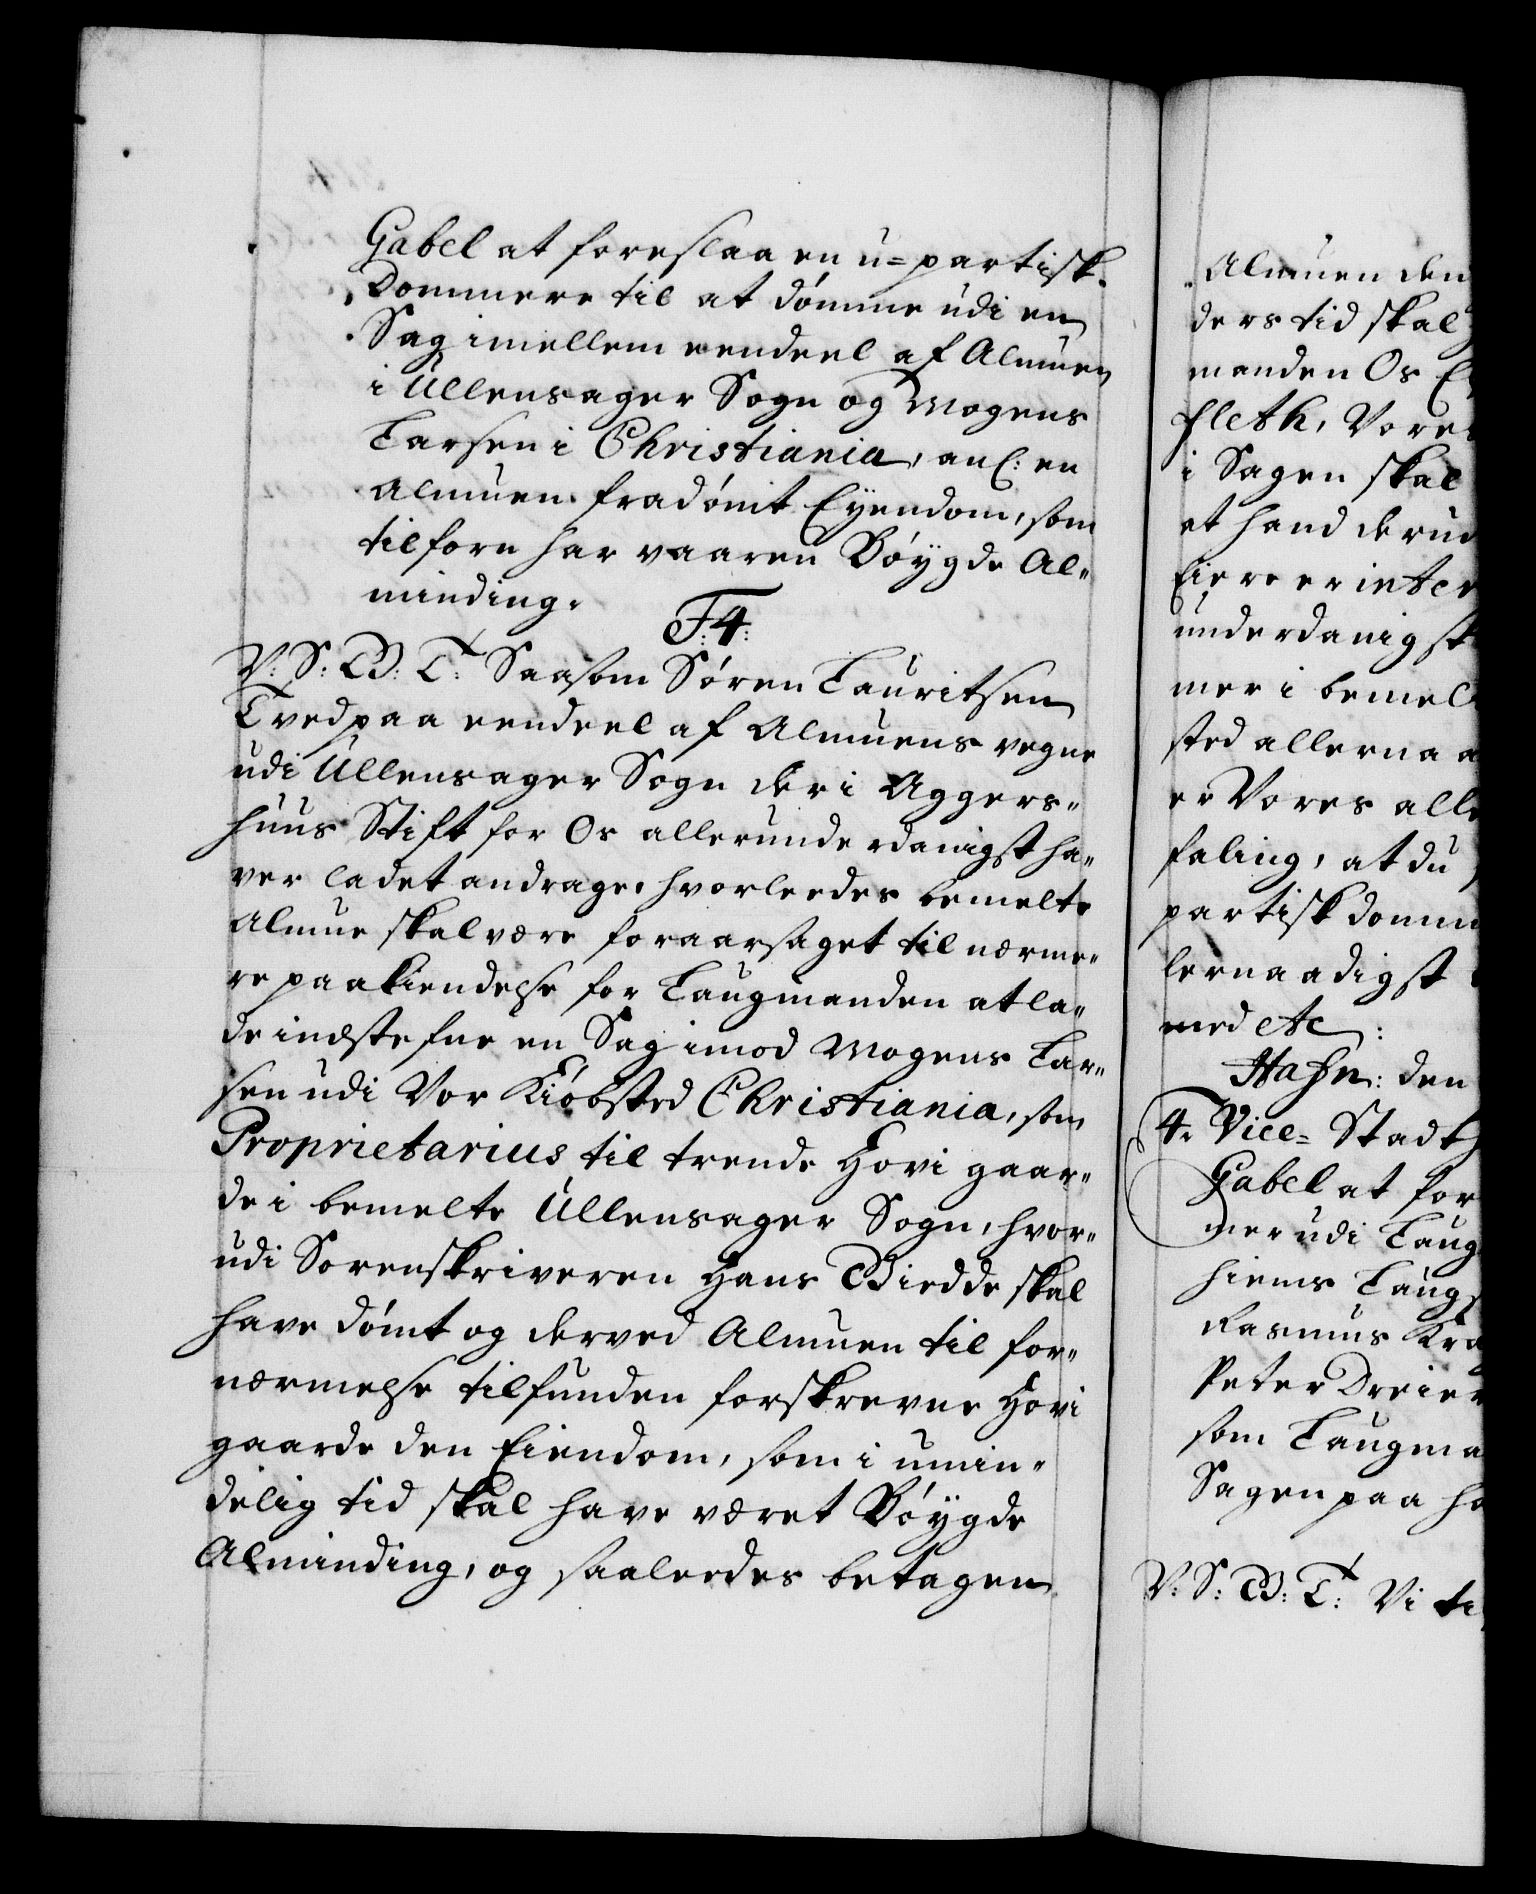 Gabel at foreslaa en u=partisk
Dommere til at dømme udi en
Sag imellem eendeel af Almuen
i Ullensager Sogn og Mogens
Larsen i Christiania, anl: en
Almuen fradømt Eyendom, som
tilforn har vaaren Bøygde Al-
minding.
F:4:
V: S: G: T: Saasom Søren Lauritsen
Tved paa eendeel af Almuens vegne
udi Ullensager Sogn der i Aggers-
huus Stift for Os allerunderdanigst ha-
ver ladet andrage, hvorleedes bemelte
Almue skal være foraarsaget til nærme-
re paakiendelse for Laugmanden at la-
de indstefne en Sag imod Mogens Lar-
sen udi Vor Kiøbsted Christiania, som
Proprietarius til trende Hovi gaar-
de i bemelte Ullensager Sogn, hvor-
udi Sorenskriveren Hans Bredde skal
have dømt og derved Almuen til for-
nærmelse tilfunden forskrevne Hovi
gaarde den Eiendom, som i umin-
delig tid skal have været Bøygde
Alminding, og saaleedes betagen
Almuen den
ders tid skal
manden Os
Fleth, Vores
i Sagen skal
at hand derud
Eiere er inter
underdanigst
mer i bemel
sted allernaa
er Vores alle
faling, at du
partisk domm
lernaadigst
med etc:
Hafn: den
4. Vice= Stadth
Gabel at for
mer udi Laug
hiems Laug
Rasmus Kra
Peter Dreier
som Laugma
Sagen paa ha
V: S: G: T: Vi ti